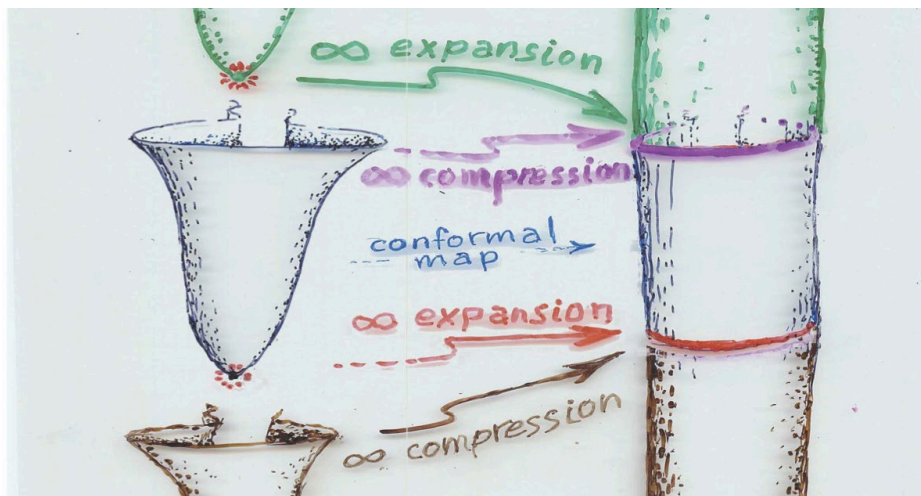 ∞ expansion
∞ compression
conformal
map
∞ expansion
∞ compression